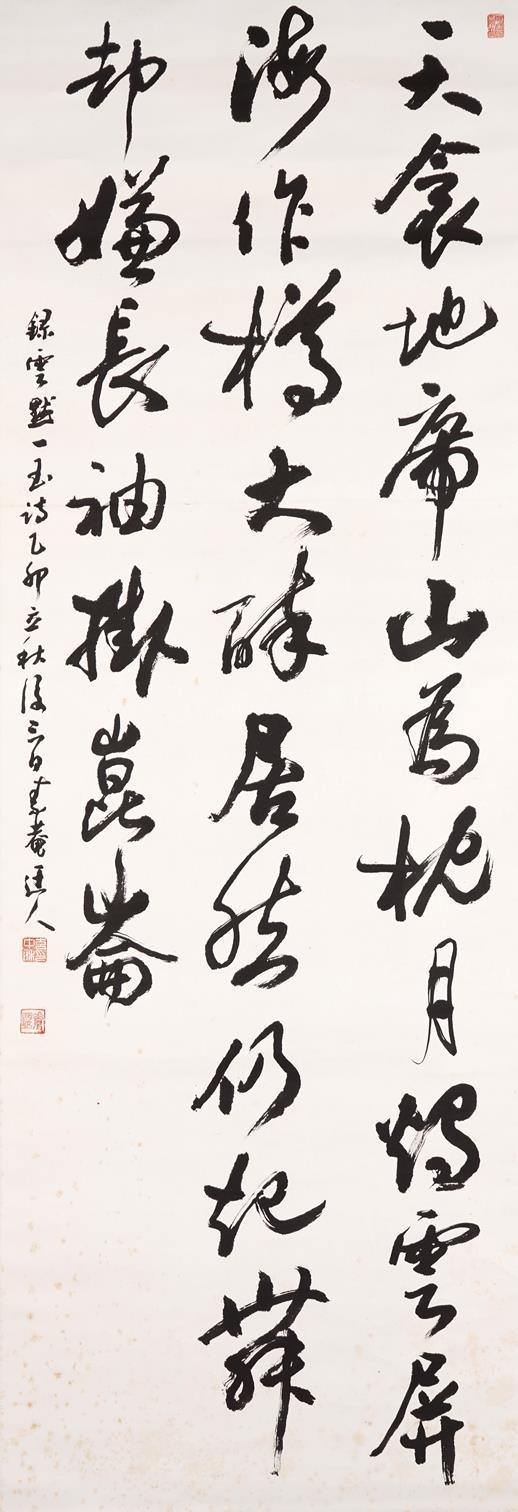 天衾地席山為枕月燭雲屏
海作樽大醉居然仍起舞
却嫌長袖掛崑崙
錄震黙一玉詩乙卯立秋後三日素菴人